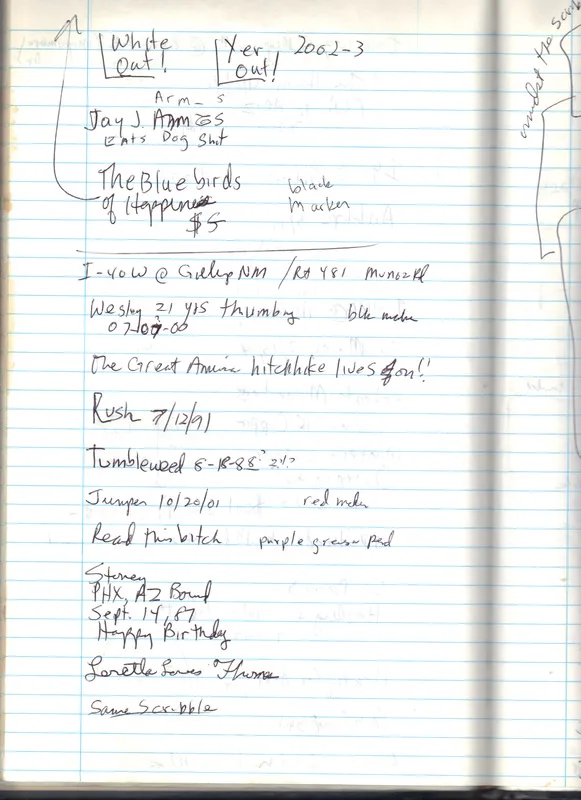 White Yer 2002-3
Out! Out!
Arm_s
Jay J. Armes
Eats Dog Shit
The Bluebirds black
of Happiness marker
$5
I-40W @ Gallup NM / Rt 481 Munoz Rd
Wesley 21 yrs thumbing blk maker
07-07-00
The Great America hitchhike lives on!!
Rush 7/12/91
Tumbleweed 8-18-88
Jumper 10/20/01 red maker
Read this bitch purple grease
Stoney
PHX, AZ Bound
Sept. 14, 87
Happy Birthday
Loretta Loves Thomas
Same Scribble
amidst the